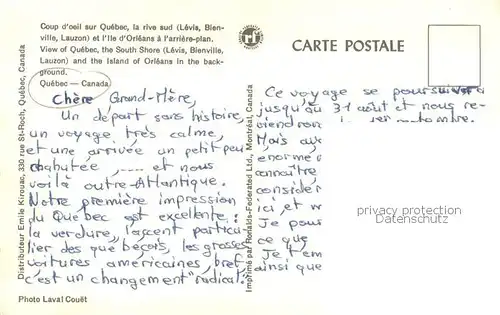 Coup d'oeil sur Québec, la rive sud (Lévis, Bien-
ville, Lauzon) et l'Ile d'Orléans à l'arrière-plan.
View of Québec, the South Shore (Lévis, Bienville,
Lauzon) and the Island of Orleans in the back-
ground.
Québec — Canada
CARTE POSTALE
Distributeur Emile Kirouac, 330 rue St-Roch, Québec, Canada
Imprimé par Ronalds-Federated Ltd., Montréal, Canada
Chère Grand-Mère,
Un départ sans histoire,
un voyage très calme,
et une arrivée un petit peu
chahutée ..... et nous
voilà outre-Atlantique.
Notre première impression
du Québec est excellente :
la verdure, l'accent particu-
lier des québécois, les grosses
voitures américaines, bref,
c'est un changement "radical".
Ce voyage se poursuivra
jusqu'au 31 août et nous re-
viendrons
Mais au
énormé
connaître
considér
ici, et
Je pour
ce que
Je t'em
ainsi que
privacy protection
Datenschutz
Photo Laval Couët